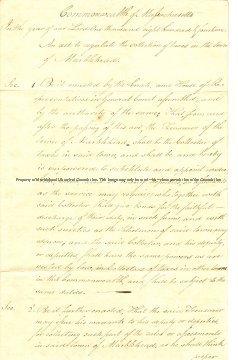 Commonwealth of Massachusetts
In the year of our Lord One thousand eight hundred & fourteen
An act to regulate the collection of taxes in the town
of Marblehead.
Sec. 1. Be it enacted by the Senate, and House of Re-
presentatives in General Court assembled, and
by the authority of the same, That from and
after the passing of this act, the Treasurer of the
Town of Marblehead, shall be the Collector of
taxes in said town, and shall be and hereby
is empowered to substitute and appoint under
as the service may require; and together with
said Collector shall give bonds for the faithful
discharge of their duty, in such sums and with
such sureties as the Selectmen of said town may
approve, and the said Collector, and his deputy,
or deputies, shall have the same powers as are
vested by law, in Collectors of taxes in other towns
in this Commonwealth, and shall be subject to the
same duties.
Sec. 2. Be it further enacted, That the said Treasurer
may issue his warrants to his deputy or deputies
for collecting such part of the rates or assessments
in said town of Marblehead, as he shall think
proper